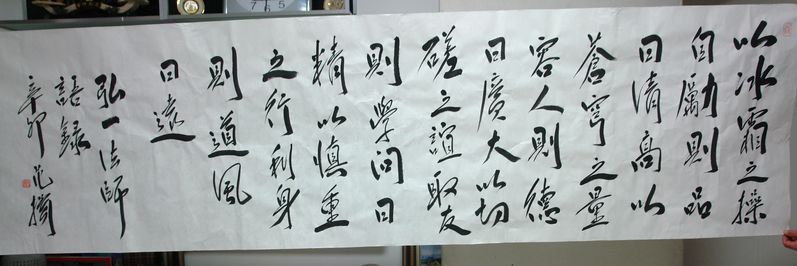 以冰霜之操
自勵則品
日清高以
蒼穹之量
容人則德
日廣大以切
磋之誼取友
則學問日
精以慎重
之行利身
則道風
日遠
弘一法師
語錄
辛卯